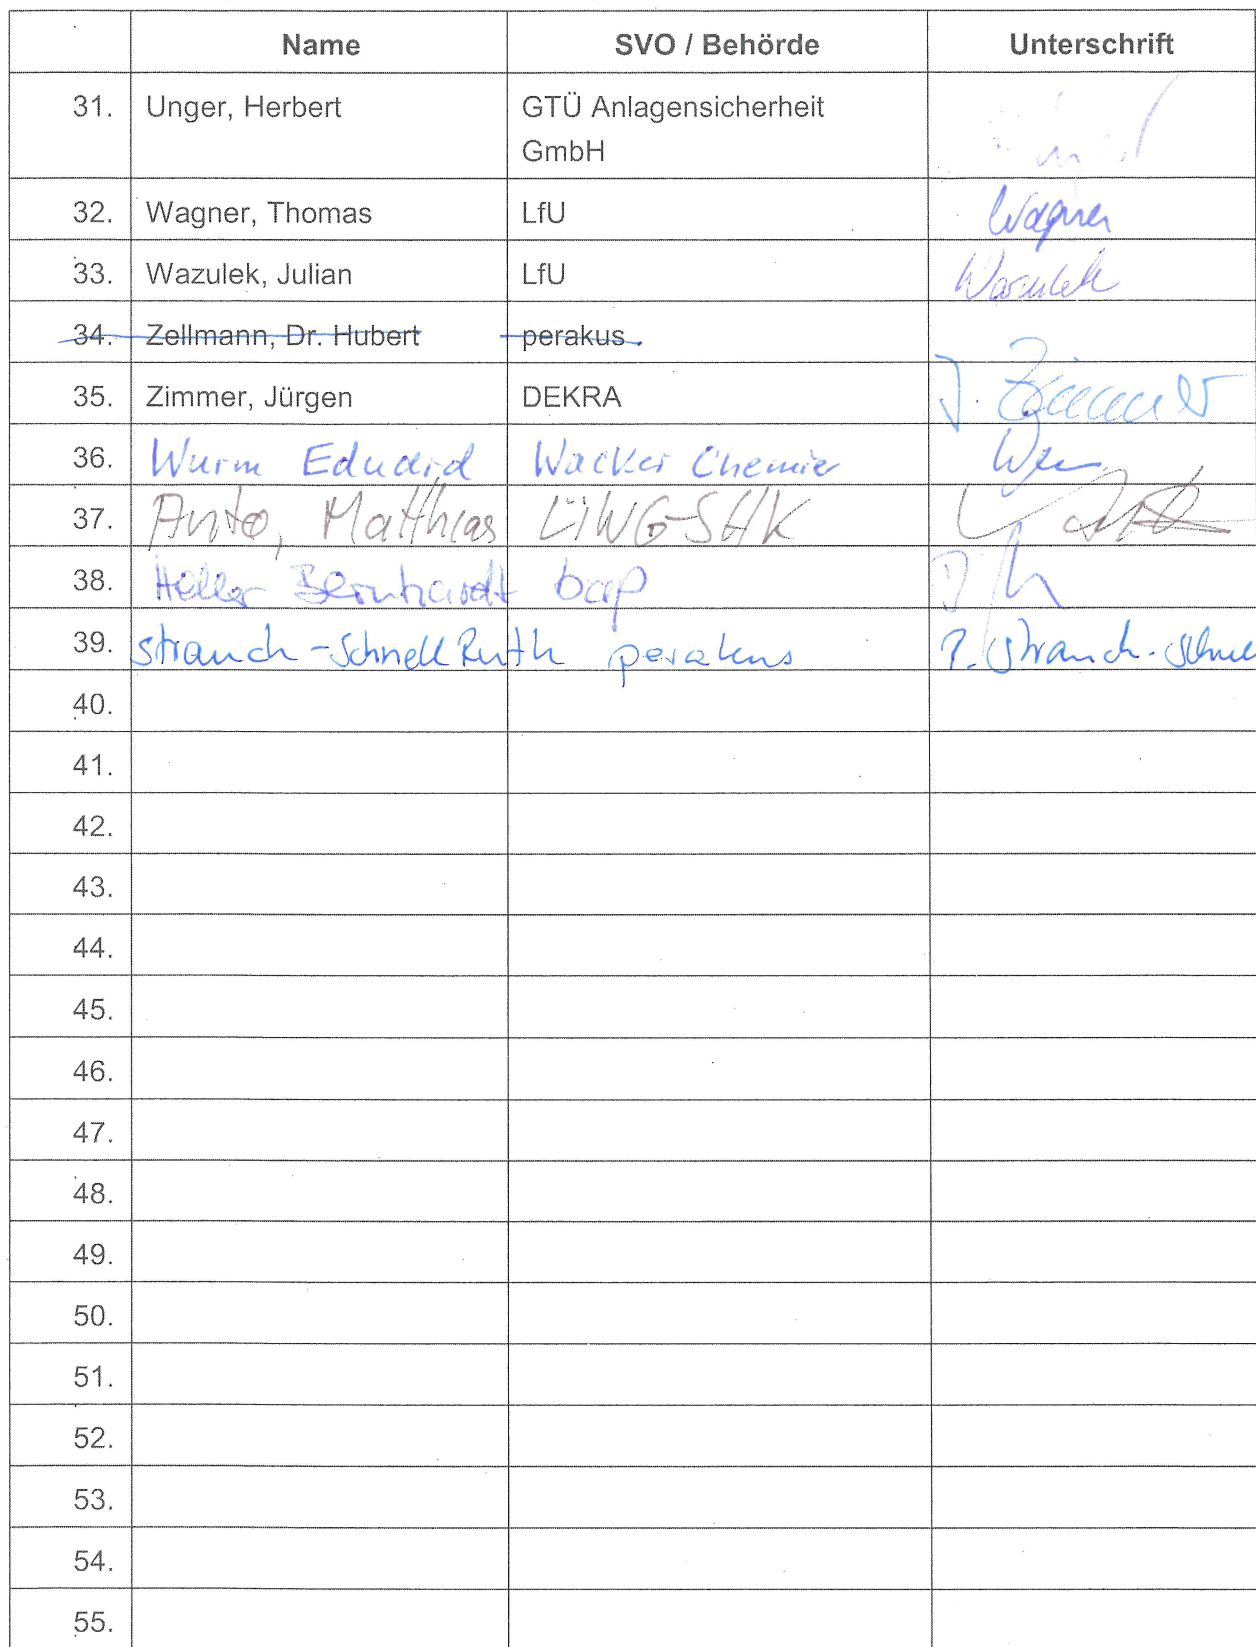 Name SVO / Behörde Unterschrift
31. Unger, Herbert GTÜ Anlagensicherheit
GmbH
32. Wagner, Thomas LfU Wagner
33. Wazulek, Julian LfU Wazulek
34. Zellmann, Dr. Hubert perakus
35. Zimmer, Jürgen DEKRA J. Zimmer
36. Wurm Eduard Wacker Chemie
37. Matthias
38. Heller Bernhardt bap
39. Strauch-Schnell Ruth perakus R. Strauch-Schnell
40.
41.
42.
43.
44.
45.
46.
47.
48.
49.
50.
51.
52.
53.
54.
55.